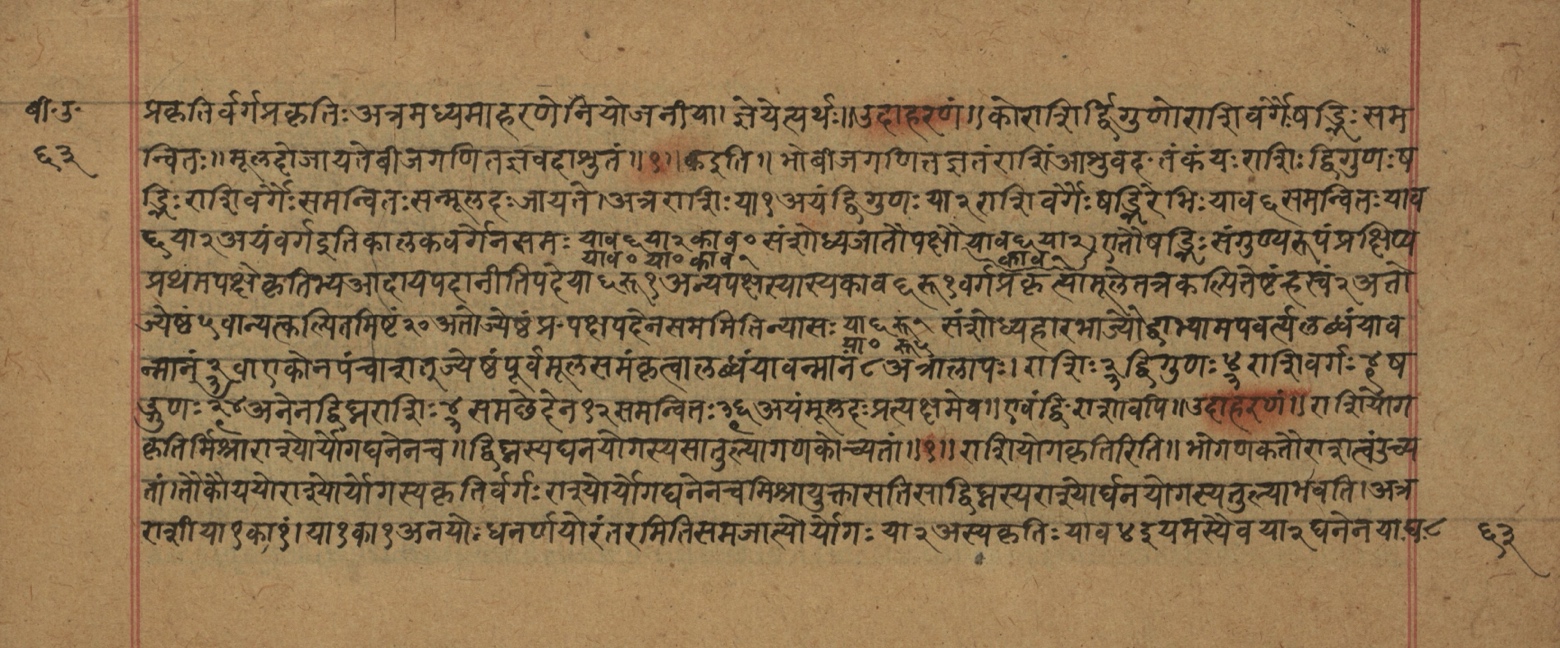 बी॰उ॰
६३
प्रकृतिर्वर्गप्रकृतिः अत्रमध्यमाहरणेनियोजनीया। ज्ञेयेत्यर्थः॥उदाहरणं॥ कोराशिर्द्विगुणोराशिवर्गैःषड्भिः सम
न्वितः॥ मूलदोजायतेबीजगणितज्ञवदाशुतं॥१॥ कइति॥ भोबीजगणितज्ञतंराशिंआशुवद तंकंयःराशिः द्विगुणः ष
ड्भिः राशिवर्गैः समन्वितः सन्मूलदः जायते। अत्रराशिः या१ अयंद्विगुणः या२ राशिवर्गैः षड्भिरेभिः याव६ समन्वितः याव
६ या२ अयंवर्गइतिकालकवर्गेनसमः याव६ या२ काव॰ संशोध्यजातौपक्षौ याव६ या२। एतौषड्भिः संगुण्यरूपंप्रक्षिप्य
याव॰ या॰ काव१ काव१
प्रथमपक्षेकृतिभ्यआदायपदानीतिपदेया६ रू१ अन्यपक्षस्यास्यकाव६ रू१ वर्गप्रकृत्यामूलेतत्रकल्पितेष्टंह्रस्वं२ अतो
ज्येष्ठं५ वान्यत्कल्पितमिष्टं२० अतोज्येष्ठंप्र॰पक्षपदेनसममितिन्यासः या६ रू१ संशोध्यहारभाज्यौद्वाभ्यामपवर्त्यलब्धंयाव
या॰ रू५
न्मानं वाएकोनपंचाशत्ज्येष्ठंपूर्वमूलसमंकृत्वालब्धंयावन्मानं८ अत्रालापः। राशिः द्विगुणः राशिवर्गः ष
ड्गुणः अनेनद्विघ्नराशिः समछेदेन१२ समन्वितः३६ अयंमूलदः प्रत्यक्षमेव॥ एवंद्विराशावपि॥ उदाहरणं॥ राशियोग
कृतिर्मिश्राराश्योर्योगघनेनच॥ द्विघ्नस्यघनयोगस्यसातुल्यागणकोच्यतां॥१॥ राशियोगकृतिरिति॥ भोगणकतौराशीत्वंउच्य
तां। तौकौययोराश्योर्योगस्यकृतिर्वर्गः राश्योर्योगघनेनचमिश्रायुक्तासतिसाद्विघ्नस्यराश्योर्घनयोगस्यतुल्याभवति। अत्र
राशीया१ का१ं। या१ का१ अनयोः धनर्णयोरंतरमितिसमजात्योर्योगः या२ अस्यकृतिः याव४ इयमस्यैवया२ घनेनयाघ८
६३